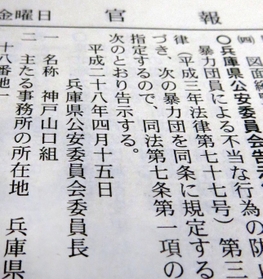 金曜日 官報
図面縦
◯兵庫県公安委員会告示
暴力団員による不当な行為の防
律(平成三年法律第七十七号)第三
づき、次の暴力団を同条に規定する
指定するので、同法第七条第一項の
次のとおり告示する。
平成二十八年四月十五日
兵庫県公安委員会委員長
一 名称 神戸山口組
二 主たる事務所の所在地 兵庫県
十八番地一